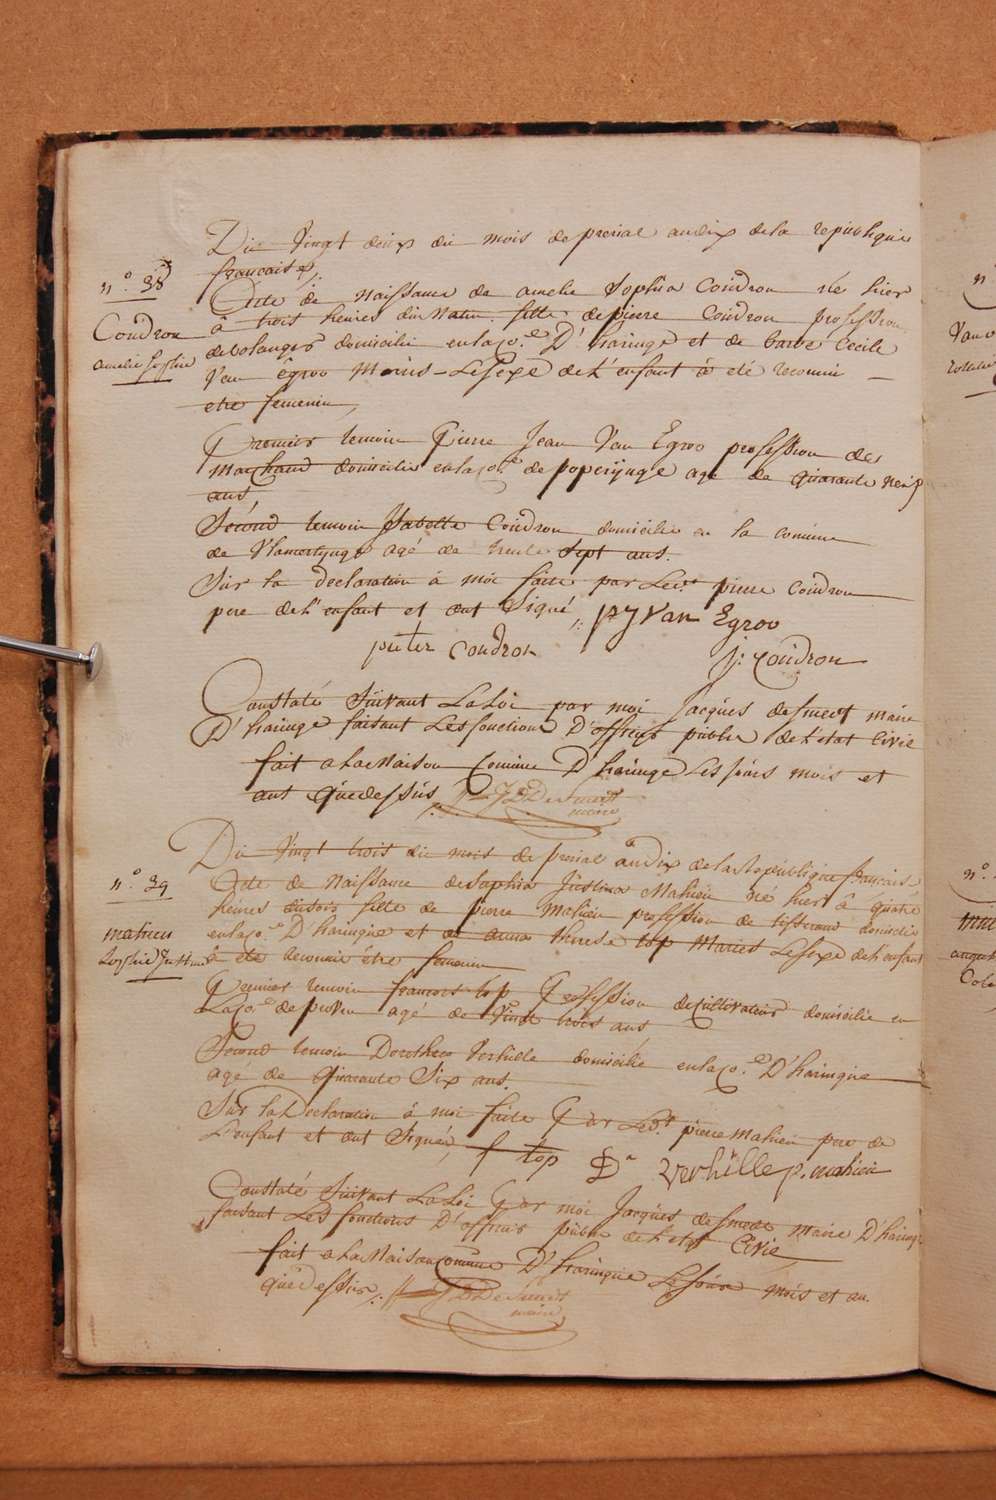 Du Vingt deux du mois de prerial an dix de la republique
francaise,
n.° 38
Coudron
amelie sophie
Acte de Naissance de amelie Sophia Coudron né hier
à trois heures du Matin fille de pierre Coudron profession
de bolanger domicilie en la co.ne D'haringe et de barbe Cecile
Van Egroo Mariés - Le Sexe de L'enfant à eté reconnu
etre femenin,
Premier temoin Pierre Jean Van Egroo profession de
Marchand domicilié en la co.ne de poperijnge age de quarante neuf
ans,
Second temoin Isabelle Coudron domicilié en la comune
de Vlamertijnge agé de trente sept ans.
Sur la declaration à moi faite par Led.t pierre Coudron
pere de L'enfant et ont Signé, PJ Van Egroo
pieter Condron
j: Coudron
Constaté Suivant La Loi par moi Jacques de Smedt maire
D'haringe faisant Les fonctions D'officier public de L'etat Civil
fait a La Maison Comune D'haringe Les jours mois et
ans que dessus J B De Smedt
maire
Du Vingt trois du mois de prerial an Dix de La Republique francaise
n.° 39
mahieu
Sophie Justine
Acte de Naissance de Sophia Justina Mahieu né hier à quatre
heures du soir fille de pierre Mahieu profession de tisserand domicilié
en la co.ne D'haringue et de anne therese top Mariés Le Sexe de L'enfant
à eté reconnu être femenin
Premier temoin francois top Profession de Cultivateur domicilié en
La co.ne de proven agé de Vingt trois ans
Second temoin Dorothea Verhille domicilié en la co.ne D'haringue
agé de quarante Six ans.
Sur la Declaration à moi faite Par Led.t pierre Mahieu pere de
L'enfant et ont Signée, f top Da Verhille p. mahieu
Constaté Suivant La Loi Par moi Jacques de Smedt Maire D'haringe
faisant Les fonctions D'officier public de L'etat Civil
fait a La Maison Comune D'haringue Le jour mois et an
que Dessus J B De Smedt
maire
n.°
Van
n.°
august